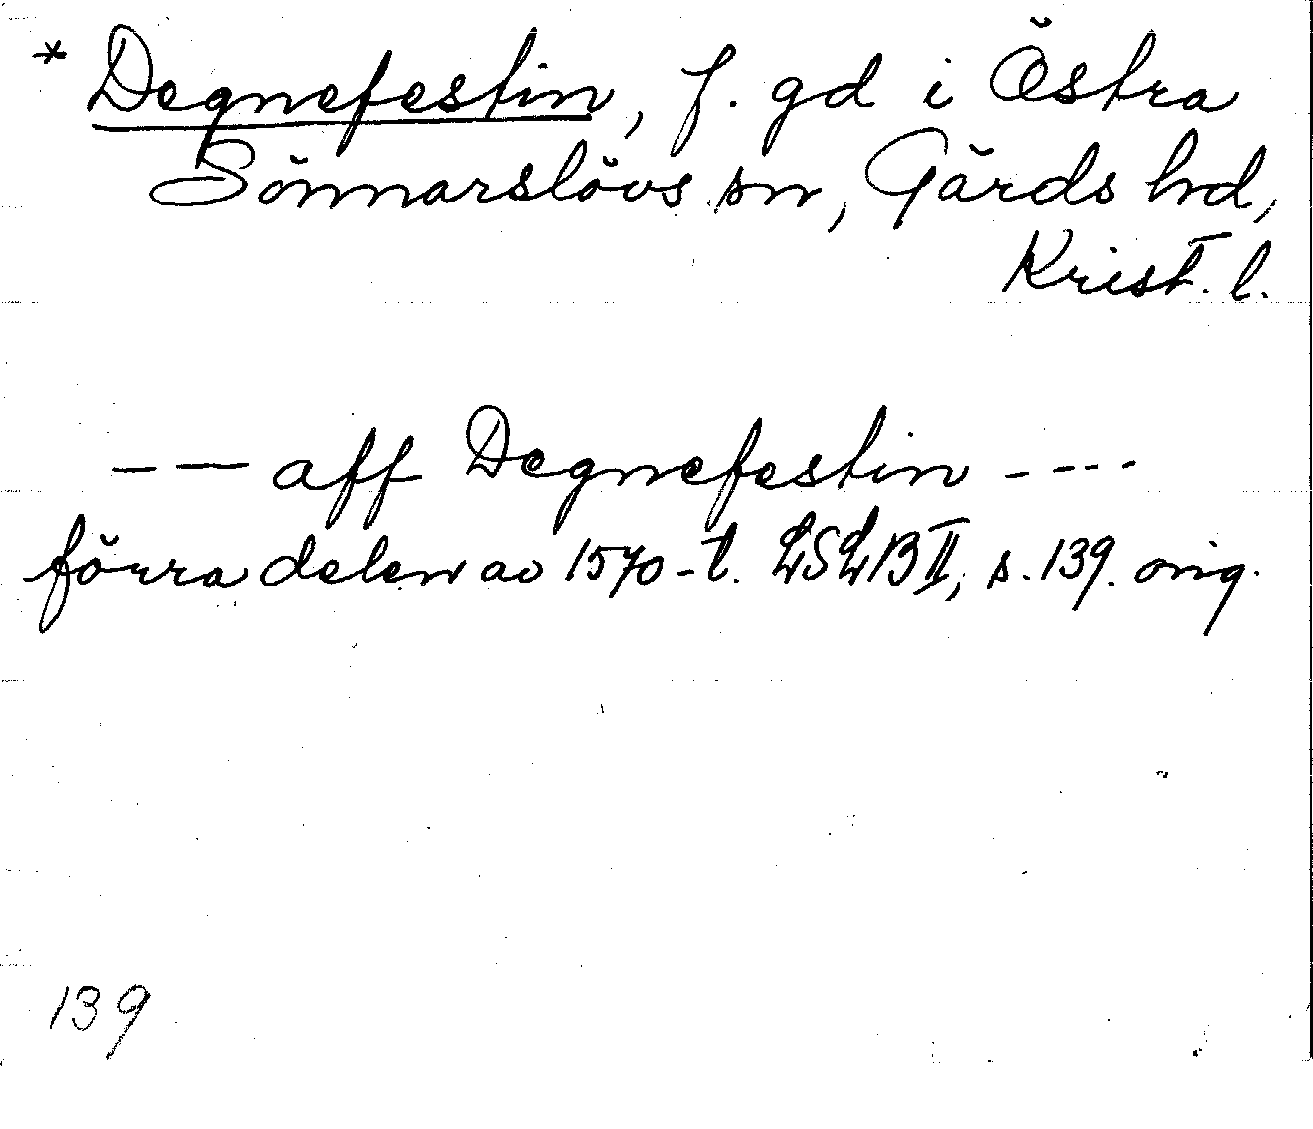 * Degnefestin, f. gd i Östra
Sönnarslövs sn, Gärds hd,
Krist. l.
— — aff Degnefestin - - - -
förra delen av 1570-t. LSLB II, s. 139. orig.
139